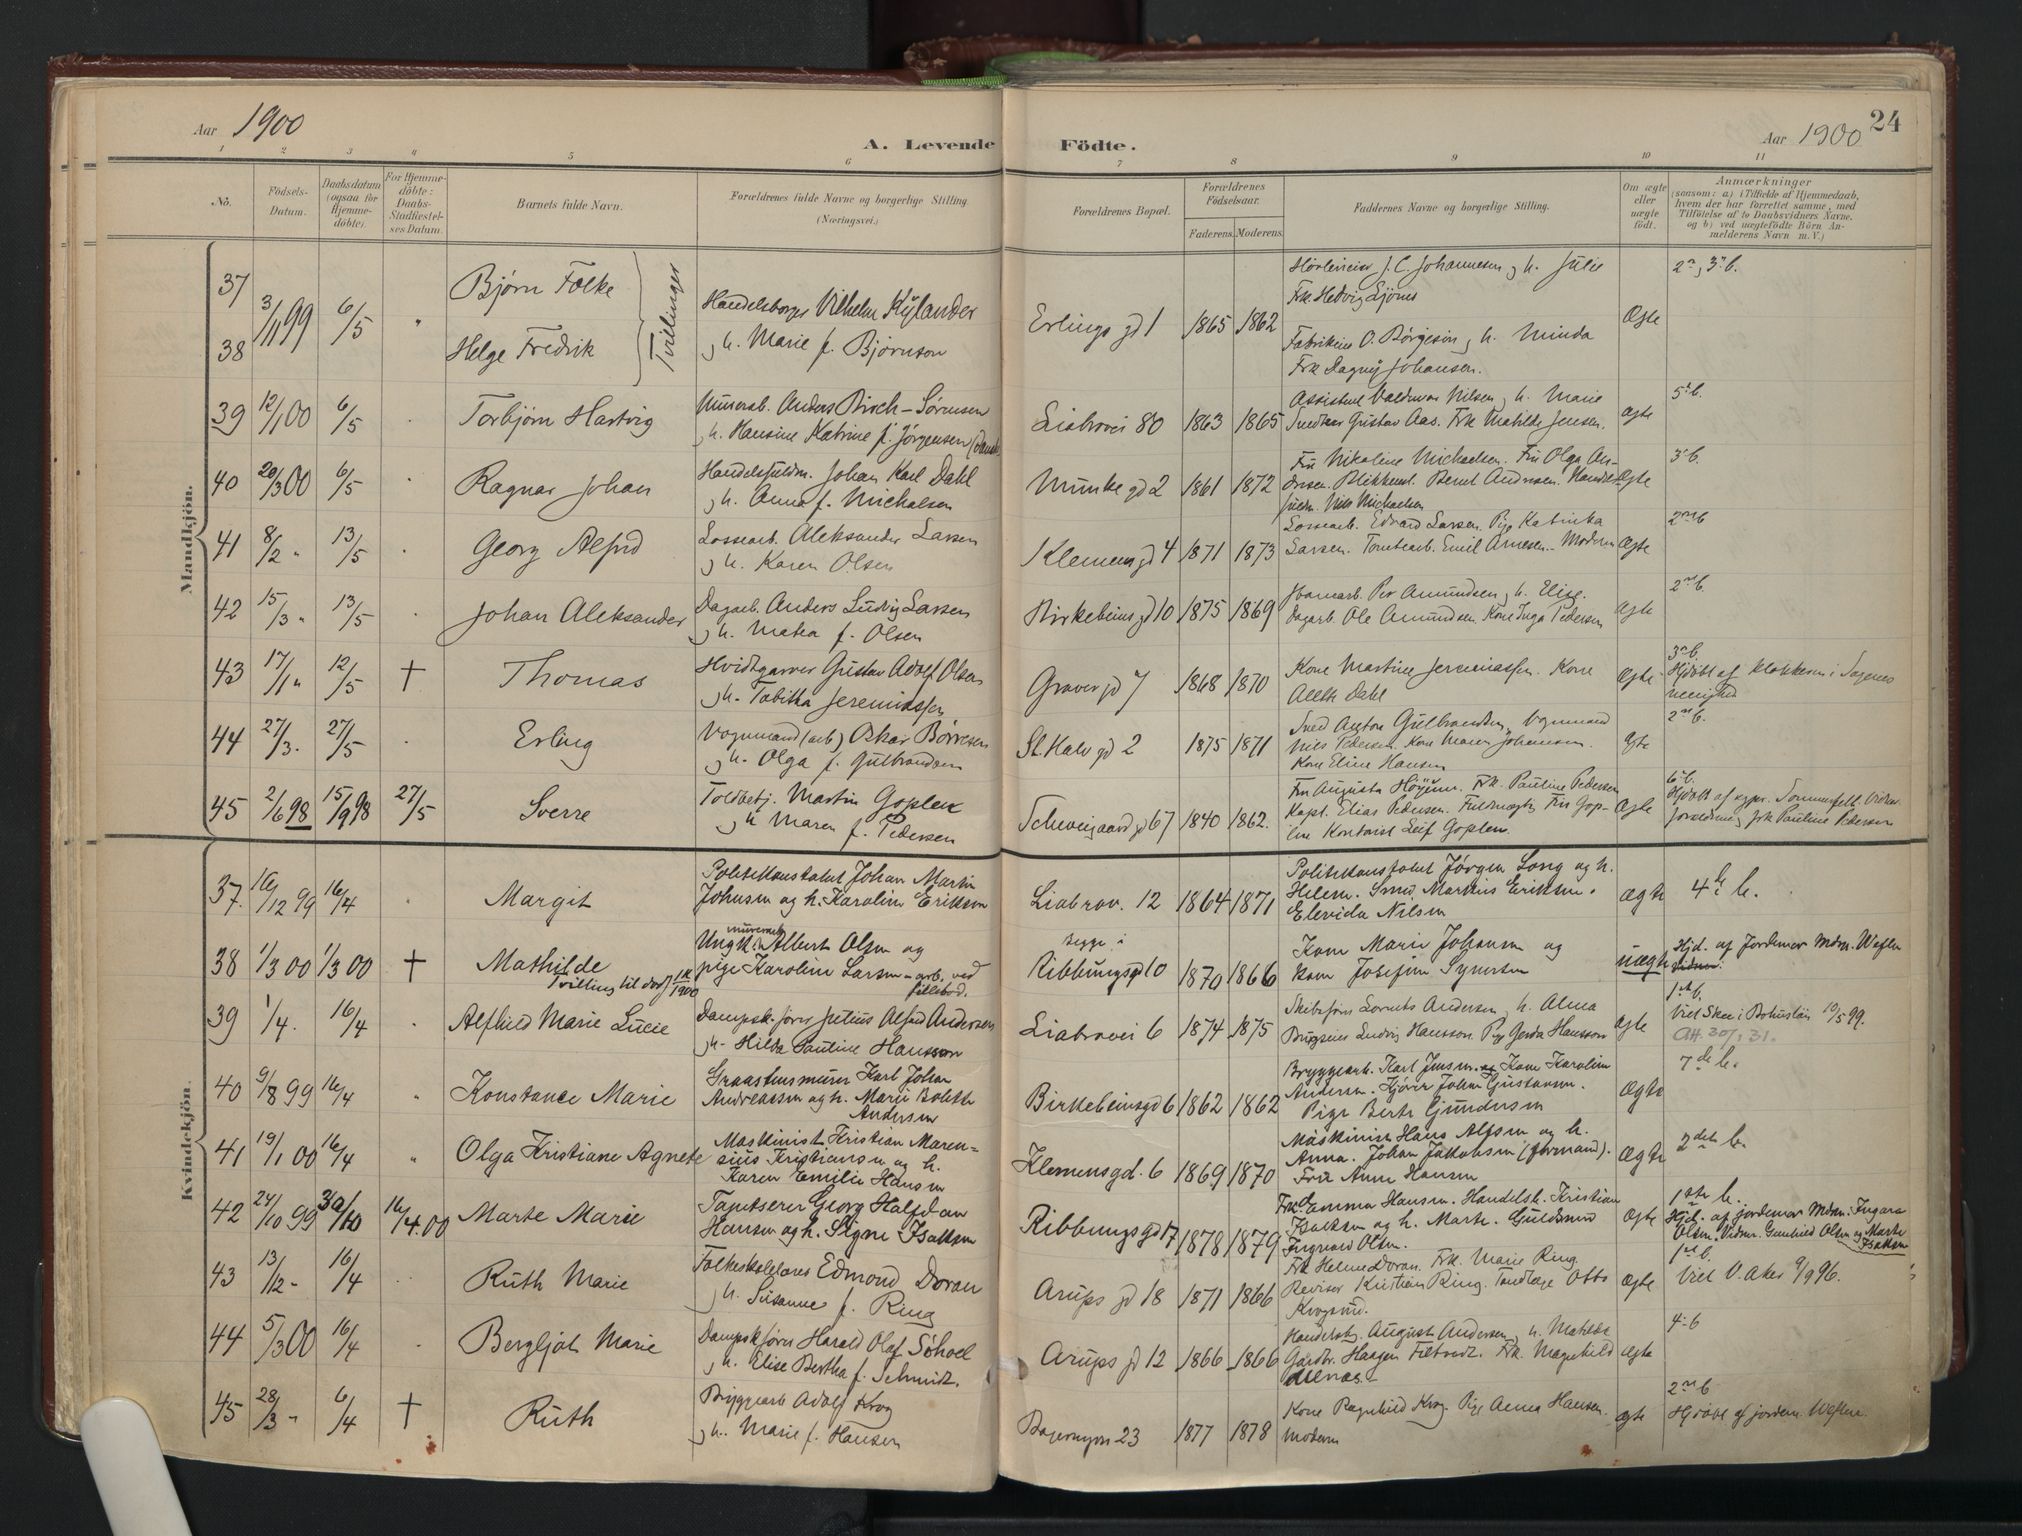 24
Aar 1900
A. Levende Födte.
Aar 1900
1 2 3 4 5 6 7 8 9 10 11
No.
Födsels-
Datum.
Daabsdatum
(ogsaa for
Hjemme-
döbte).
For Hjemme-
döbte:
Daabs-
Stadfæstel-
ses Datum.
Barnets fulde Navn.
Forældrenes fulde Navne og borgerlige Stilling.
(Næringsvei.)
Forældrenes Bopæl.
Forældrenes
Födselsaar.
Faderens. Moderens.
Faddernes Navne og borgerlige Stilling.
Om ægte
eller
uægte
födt.
Anmærkninger
(saasom: a) i Tilfælde af Hjemmedaab,
hvem der har forrettet samme, med
Tilföielse af to Daabsvidners Navne.
og b) ved uægtefödte Börn An-
melderens Navn m. V.)
Mandkjön.
37
38
3/11 99 6/5 "
Bjørn Folke
Helge Fredrik
Tvilinger
Handelsborger Vilhelm Kylander
og h. Marie f. Bjørnson
Erlings gd 1 1865 1862
J. C. Johannesen og h. Julie
Frk. Hedvig
O. Børgeson og h. Minda
Frk Dagny Johansen.
Ægte
2n, 3' b.
39 12/1 00 6/5
Torbjørn Hartvig
Murersv. Anders Birch-Sørensen
og h. Hansine Katrine f. Jørgensen
Liabrovei 80 1863 1865
Assistent Valdemar Nilsen og h. Marie
Gustav Aas. Frk Mathilde Jensen.
Ægte
5' b.
40 20/3 00 6/5
Ragnar Johan
Handelsfuldm. Johan Karl Dahl
og h. Anna f. Michalsen
Munke gd 2 1861 1872
Fru Nikoline Michaelsen. Fru Olga An-
dresen. Bernt Andresen.
fuldm. Nils Michaelsen
Ægte
3' b.
41 8/2 " 13/5
Georg Alfred
Lossearb. Aleksander Larsen
og h. Karen Olsen
Klemens gd 4 1871 1873
Lossearb. Edvard Larsen. Pige Katinka
Larsen. Tomtearb. Emil Arnesen. Moderen
Ægte
2' b
42 15/3 " 13/5
Johan Aleksander
Dagarb. Anders Ludvig Larsen
og h. Matea f. Olsen
Birkebeins gd 10 1875 1869
Per Amundsen og h. Elise.
Dagarb. Ole Amundsen. Kone Inga Pedersen
Ægte
2' b.
43 17/1 " 12/5 †
Thomas
Hvidtgarver Gustav Adolf Olsen
og h. Tabitha Jeremiassen
Graver gd 7 1868 1870
Kone Martine Jeremiassen. Kone
Dahl
Ægte
3' b.
Hjdöbt af Klokkeren i Sagenes
menighed
44 27/3. 27/5
Erling
Vognmand (arb) Oskar Børresen
og h. Olga f. Gulbrandsen
St. Halv. gd 2 1875 1871
Anton Gulbrandsen, Vognmand
Nils Pedersen. Kone Maren Johannesen.
Kone Eline Hansen
Ægte
2' b.
45 2/6 98 15/9 98 27/5
Sverre
Toldbetj. Martin Goplen
og h. Maren f. Pedersen
Schweigaards gd 67 1840 1862.
Fru Augusta Frk. Pauline Pedersen
Kapt. Elias Pedersen. Fuldmægtig Gop-
len Kontorist Leif Goplen.
Ægte
6' b.
Hjdöbt af Sommerfelt. Vidner
forældrene og frk Pauline Pedersen
Kvindekjön.
37. 16/12 99 16/4
Margit
Politikonstabel Johan Martin
Johnsen og h. Karoline Eriksen
Liabrov. 12 1864 1871
Politikonstabel Jørgen Long og h.
Helene. Smed Martinius Eriksen.
Elevida Nilsen
Ægte
4de b.
38 1/3 00 1/3 00 †
Mathilde
Tvilling til
Ungk. murerarb. Albert Olsen og
pige Karoline Larsen - arb. ved
begge i
Ribbungsgd 10 1870 1866
Kone Marie Johansen og
Kone Josefine Synersen
uægte
Hjd. af Jordemor Mdm. Weflen
39 1/4. 16/4
Alfhild Marie Lucie
Dampsk. fører Julius Alfred Andersen
og h. Hilda Pauline Hansson
Liabrovei 6 1874 1875
Skibsfører Lorents Andersen og h. Alma
Ludvig Hansson. Pige Gerda Hansson
Ægte
1ste b.
Viet Skee i Bohuslän 10/5 99.
Att. 30/1 31.
40 9/8 99 16/4 "
Konstance Marie
Graastensmurer Karl Johan
Andreassen og h. Marie Bolette
Andersen
Birkebeinsgd 6 1862 1862
Bryggearb. Karl Jensen. Kone Karoline
Andersen. Kjører Johan Gustavsen.
Pige Berte Gundersen
Ægte
7de b.
41 19/1 00 16/4 "
Olga Kristiane Agnete
Maskinist Kristian Maren-
sius Kristiansen og h.
Karen Emilie Hansen
Klemensgd. 6 1869 1870
Maskinist Hans Alfsen og h.
Anna. Johan Jakobsen (formand).
Fru Anne Hansen
Ægte
2det b.
42 24/10 99 30/10 16/4.00
Marte Marie
Tapetserer Georg Halfdan
Hansen og h. Signe Isaksen
Ribbungsgd 17 1878 1879
Frk. Emma Hansen. Handelsb. Kristian
Isaksen og h. Marte. Guldsmed
Ingvald Olsen.
Ægte
1ste b.
Hjd. af jordemor Mdm. Ingara
Olsen. Vidner. Gunhild Olsen og Marte
Isaksen
43 13/12 - 16/4
Ruth Marie
Folkeskolelærer Edmond Doran
og h. Susanne f. Ring
Arups gd 18 1871 1866
Frk Helene Doran. Frk. Marie Ring.
Revisor Kristian Ring. Tandlæge Otto
Krogsrud.
Ægte
1' b.
Viet V. Aker 9/9 96.
44 5/3 00 16/4
Bergljot Marie
Dampsk. fører Harald Olaf Schoel
og h. Elise Bertha f. Schmidt.
Arups gd 12 1866 1866
Handelsb. August Andersen og h. Matilde
Gaardbr. Haagen Frk. Magnhild
Ægte
4' b
45 28/3 " 6/4 †
Ruth
Bryggearb Adolf Krog
og h. Marie f. Hansen
23 1877 1878
Kone Ragnhild Krog. Pige Anna Hansen.
Moderen
Ægte
2' b
Hjdöbt af jordem. Weflen.